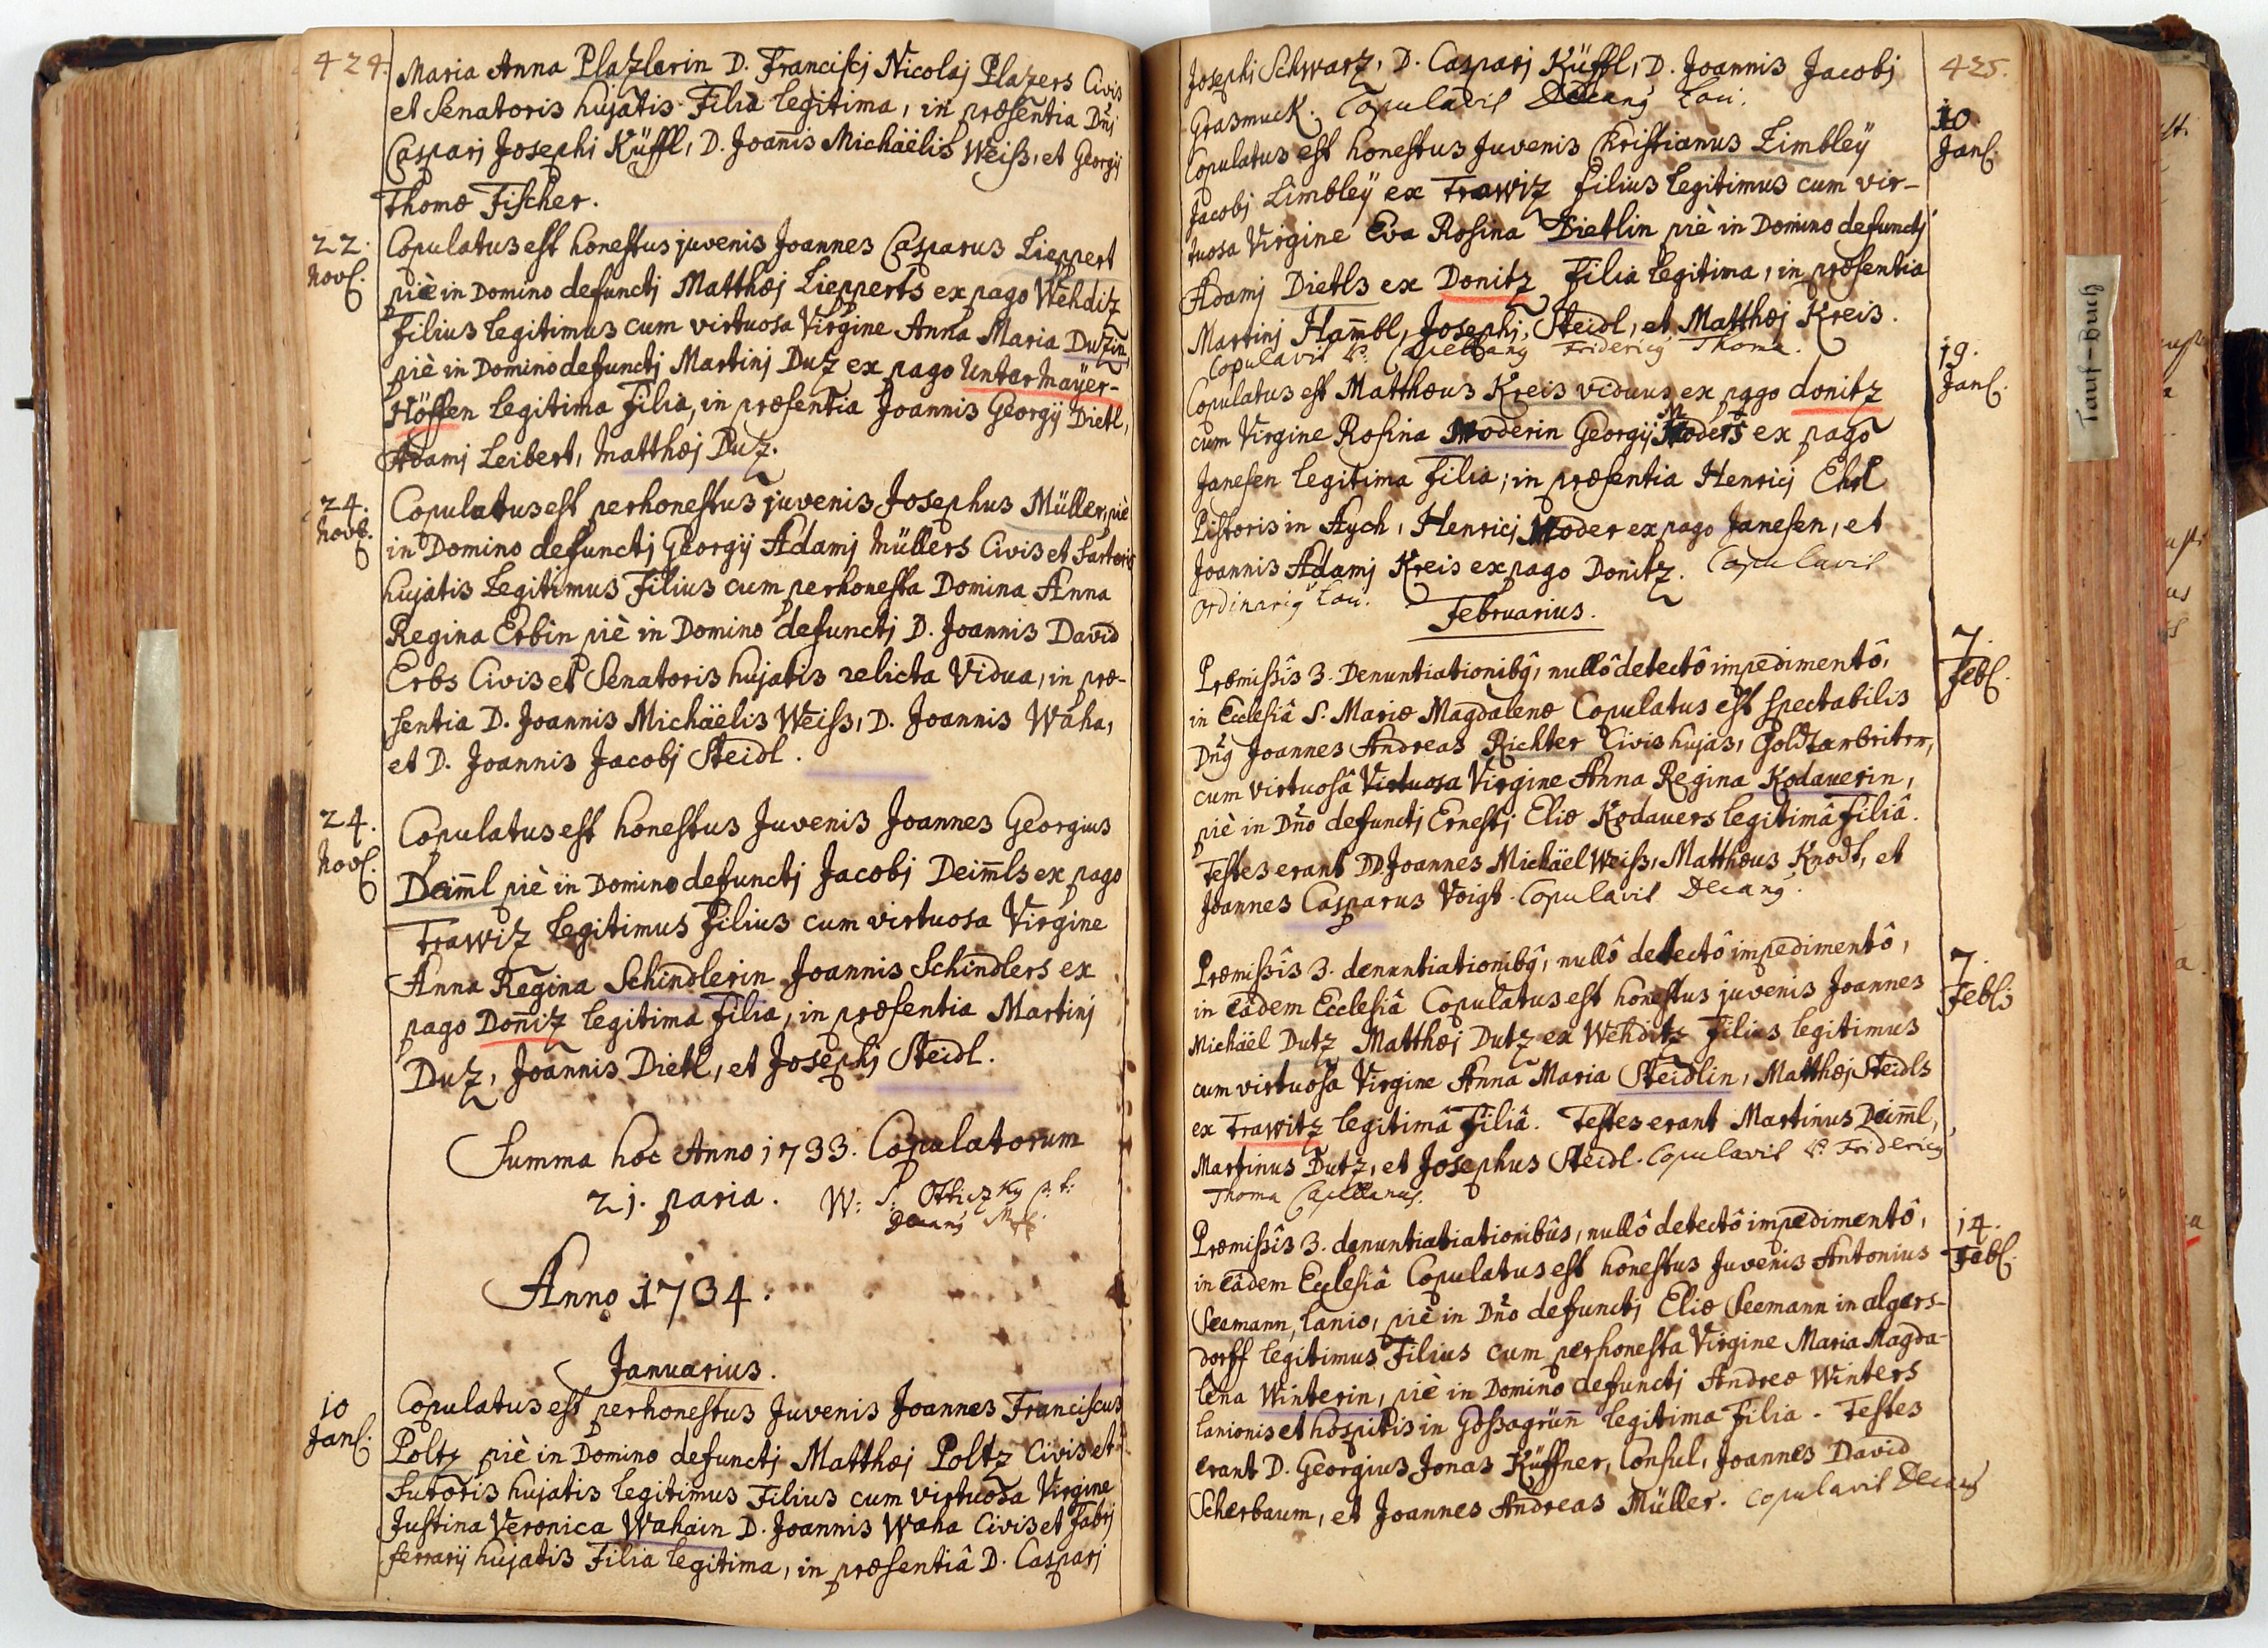 424.
Maria Anna Plazlerin D. Francisci Nicolaj Plazers Civis
et Senatoris hujatis Filia legitima, in præsentia Dnj
Casparj Josephi Küffl, D. Joannis Michäelis Weiss, et Georgij
Thomæ Fischer.
22.
Nov.
Copulatus est honestus juvenis Joannes Casparus Lieppert
piè in Domino defunctj Matthæj Liepperts ex pago Wehdiz
Filius legitimus cum virtuosa Virgine Anna Maria Duzin
piè in Domino defunctj Martinj Duz ex pago Untermaÿer-
Höffen legitima Filia, in præsentia Joannis Georgij Dietl,
Adamj Leibert, Matthæj Duz.
24.
Novb.
Copulatus est perhonestus juvenis Josephus Müller, piè
in Domino defunctj Georgij Adamj Müllers Civis et Sartoris
hujatis Legitimus Filius cum perhonesta Domina Anna
Regina Erbin piè in Domino defunctj D. Joannis David
Erbs Civis et Senatoris hujatis relicta Vidua, in præ-
sentia D. Joannis Michäelis Weiss, D. Joannis Waha,
et D. Joannis Jacobj Steidl.
24.
Nov.
Copulatus est honestus Juvenis Joannes Georgius
Deim̄l piè in Domino defunctj Jacobj Deim̄ls ex pago
Trawiz legitimus Filius cum virtuosa Virgine
Anna Regina Schindlerin Joannis Schindlers ex
pago Don̄iz legitima Filia, in præsentia Martinj
Duz, Joannis Dietl, et Josephj Steidl.
Summa hoc Anno 1733. Copulatorum
21. paria. W: S: Otticzky p: t:
Anno 1734.
Januarius.
10
Jan.
Copulatus est perhonestus Juvenis Joannes Franciscus
Poltz piè in Domino defunctj Matthæj Poltz Civis et
Sutoris hujatis legitimus Filius cum virtuosa Virgine
Justina Veronica Wahain D. Joannis Waha Civis et Fabrj
ferrarij hujatis Filia legitima, in præsentiâ D. Casparj
425.
Josephj Schwarz, D. Casparj Küffl, D. Joannis Jacobj
Grasmuck. Copulavit Decang Loci.
10.
Jan.
Copulatus est honestus Juvenis Christianus Limbleÿ
Jacobj Limbleÿ ex Trawiz filius legitimus cum vir-
tuosa Virgine Eva Rosina Dietlin piè in Domino defunctj
Adamj Dietls ex Donitz Filia legitima, in præsentia
Martinj Ham̄bl, Josephj Steidl, et Matthæj Kreis.
Copulavit P. Capellang Fridericg Thoma.
19.
Jan.
Copulatus est Matthæus Kreis viduus ex pago donitz
cum Virgine Rosina Moderin Georgij Moders ex pago
Janesen legitima filia; in præsentia Henricj Ehrl
Pistoris in Aych, Henricj Moder ex pago Janesen, et
Joannis Adamj Kreis ex pago Donitz. Copulavit
ordinarig Loci.
Februarius.
7.
Feb.
Præmissis 3. Denuntiationibg, nullô detectô impedimentô,
in Ecclesiâ S. Mariæ Magdalenæ Copulatus est spectabilis
Dng Joannes Andreas Richter Civis hujas, Goldtarbeiter,
cum virtuosâ Virtuosa Virgine Anna Regina Kodauerin,
piè in Dno defunctj Ernestj Eliæ Kodauers legitimâ filiâ.
Testes erant DD. Joannes Michäel Weiss, Matthæus Knodt, et
Joannes Casparus Voigt. Copulavit Decang.
7.
Feb.
Præmissis 3. denuntiationibg, nullô detectô impedimentô,
in eâdem Ecclesiâ Copulatus est honestus juvenis Joannes
Michäel Dutz Matthæj Dutz ex Wehditz Filius legitimus
cum virtuosa Virgine Anna Maria Steidlin, Matthæj Steidls
ex Trawitz legitimâ Filiâ. Testes erant Martinus Deim̄l,
Martinus Dutz, et Josephus Steidl. Copulavit P. Fridericg
Thoma Capellanus.
14.
Feb.
Præmissis 3. denuntiatiationibûs, nullô detectô impedimentô,
in eâdem Ecclesiâ Copulatus est honestus Juvenis Antonius
Seemann, lanio, piè in Dno defunctj Eliæ Seemann in algers-
dorff legitimus Filius cum perhonesta Virgine Maria Magda-
lena Winterin, piè in Domino defunctj Andreæ Winters
lanionis et hospitis in Gossagrün̄ legitima filia. Testes
erant D. Georgius Jonas Küffner, Consul, Joannes David
Scherbaum, et Joannes Andreas Müller. Copulavit Decang
Tauf-Buch